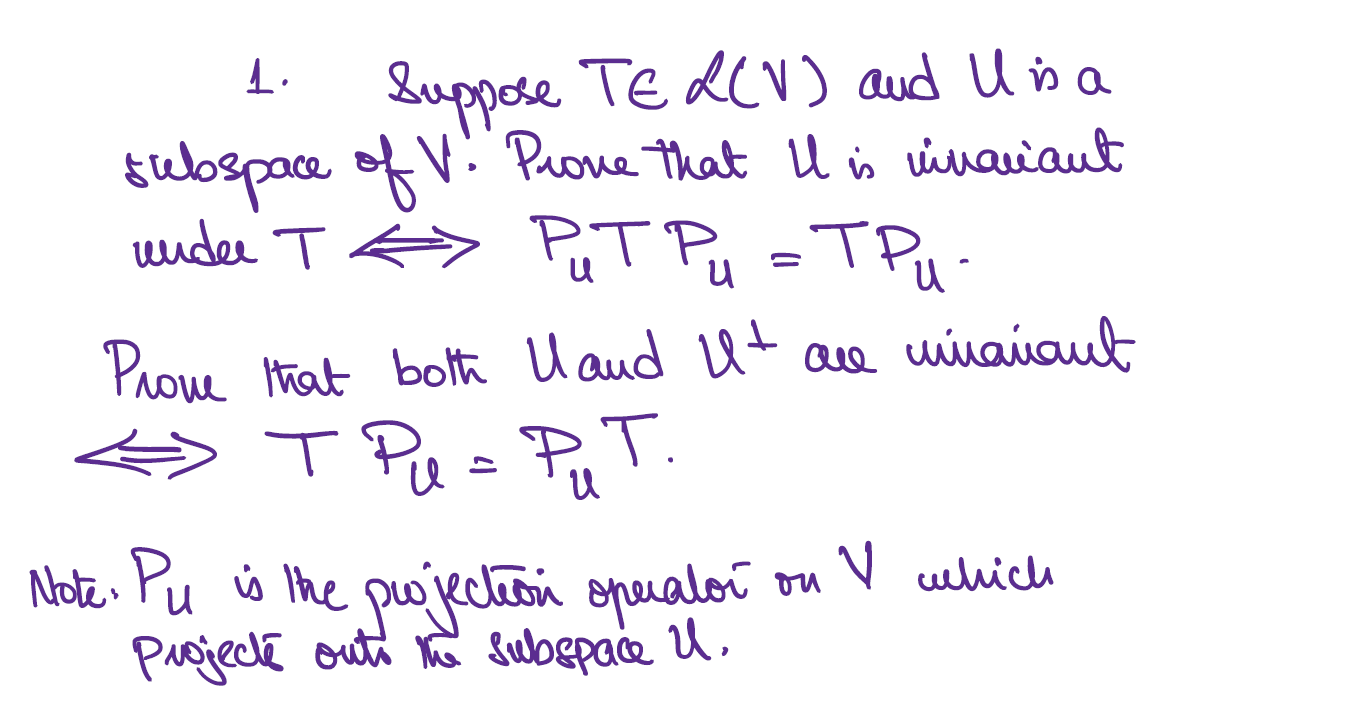 1. Suppose T ∈ ℒ(V) and U is a
subspace of V. Prove that U is invariant
under T ⟺ P_U T P_U = T P_U.
Prove that both U and U^⊥ are invariant
⟺ T P_U = P_U T.
Note: P_U is the projection operator on V which
projects onto the subspace U.